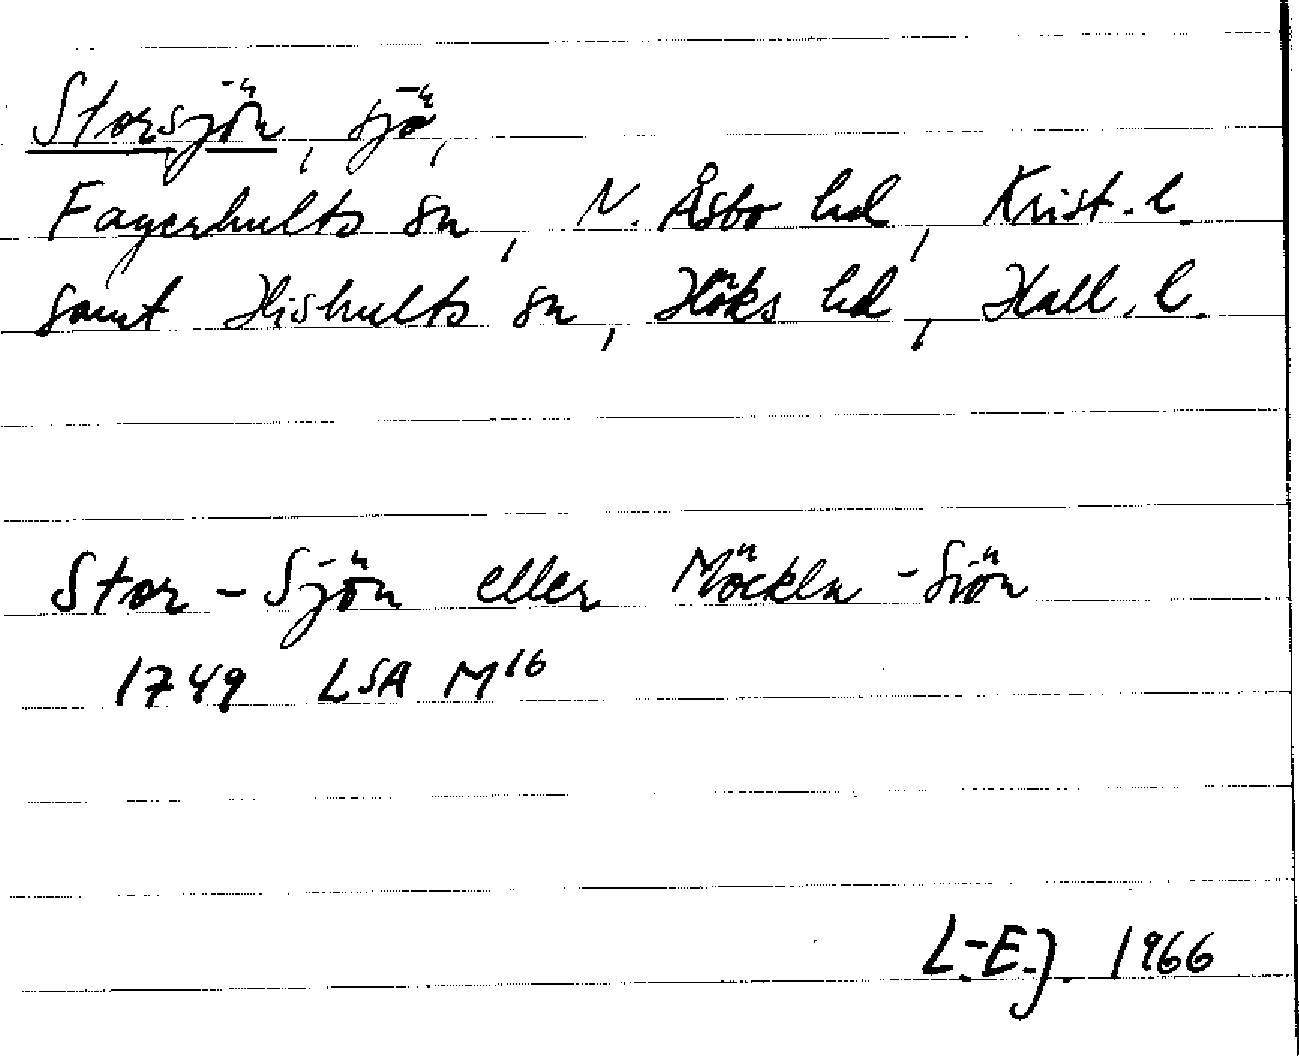 Storsjön, sjö,
Fagerhults sn, N. Åsbo hd, Krist. l.
samt Hishults sn, Höks hd, Hall. l.
Stor-Sjön eller Möckln-Siön
1749 LSA M16
L.-E.J. 1966